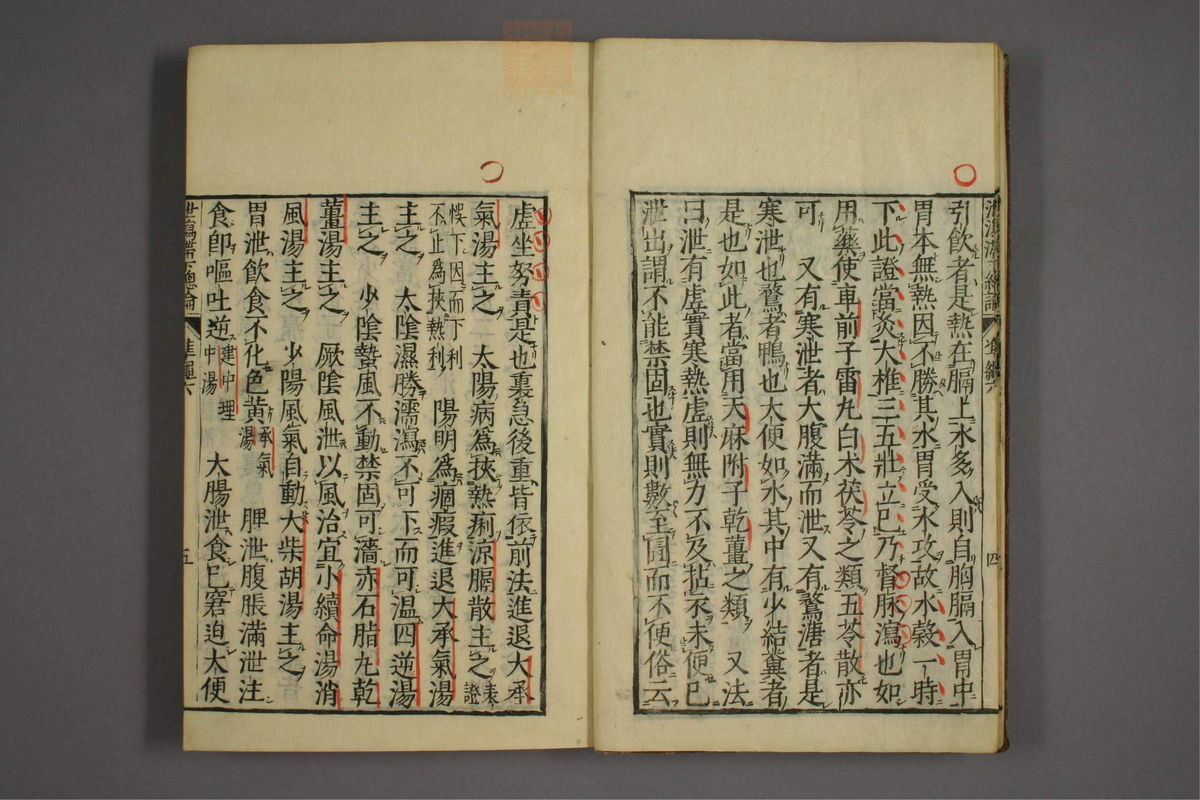 引飲者是熱在膈上水多入則自胸膈入胃中
胃本無熱因不勝其水胃受水攻故水穀一時
下此證當灸大椎三五壯立已乃督脉瀉也如
用藥使車前子雷丸白朮茯苓之類五苓散亦
可　又有寒泄者大腹滿而泄又有鶩溏者是
寒泄也鶩者鴨也大便如水其中有少結糞者
是也如此者當用天麻附子乾薑之類　又法
曰泄有虛實寒熱虛則無力不及拈衣未便已
泄出謂不能禁固也實則數至圊而不便俗云
四
虛坐努責是也裏急後重皆依前法進退大承
氣湯主之　太陽病為挾熱痢涼膈散主之表證
悞下因而下利
不止為挾熱利　陽明為痼瘕進退大承氣湯
主之　太陰濕勝濡瀉不可下而可温四逆湯
主之　少陰蟄風不動禁固可濇赤石脂丸乾
薑湯主之　厥陰風泄以風治宜小續命湯消
風湯主之　少陽風氣自動大柴胡湯主之
胃泄飲食不化色黃承氣湯　脾泄腹脹滿泄注
食即嘔吐逆建中理中湯　大腸泄食已窘迫大便
泄瀉滯下總論
準繩六
五